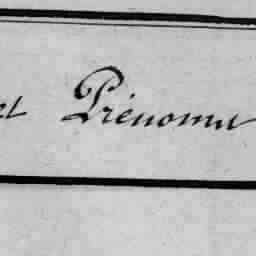 et Prénoms